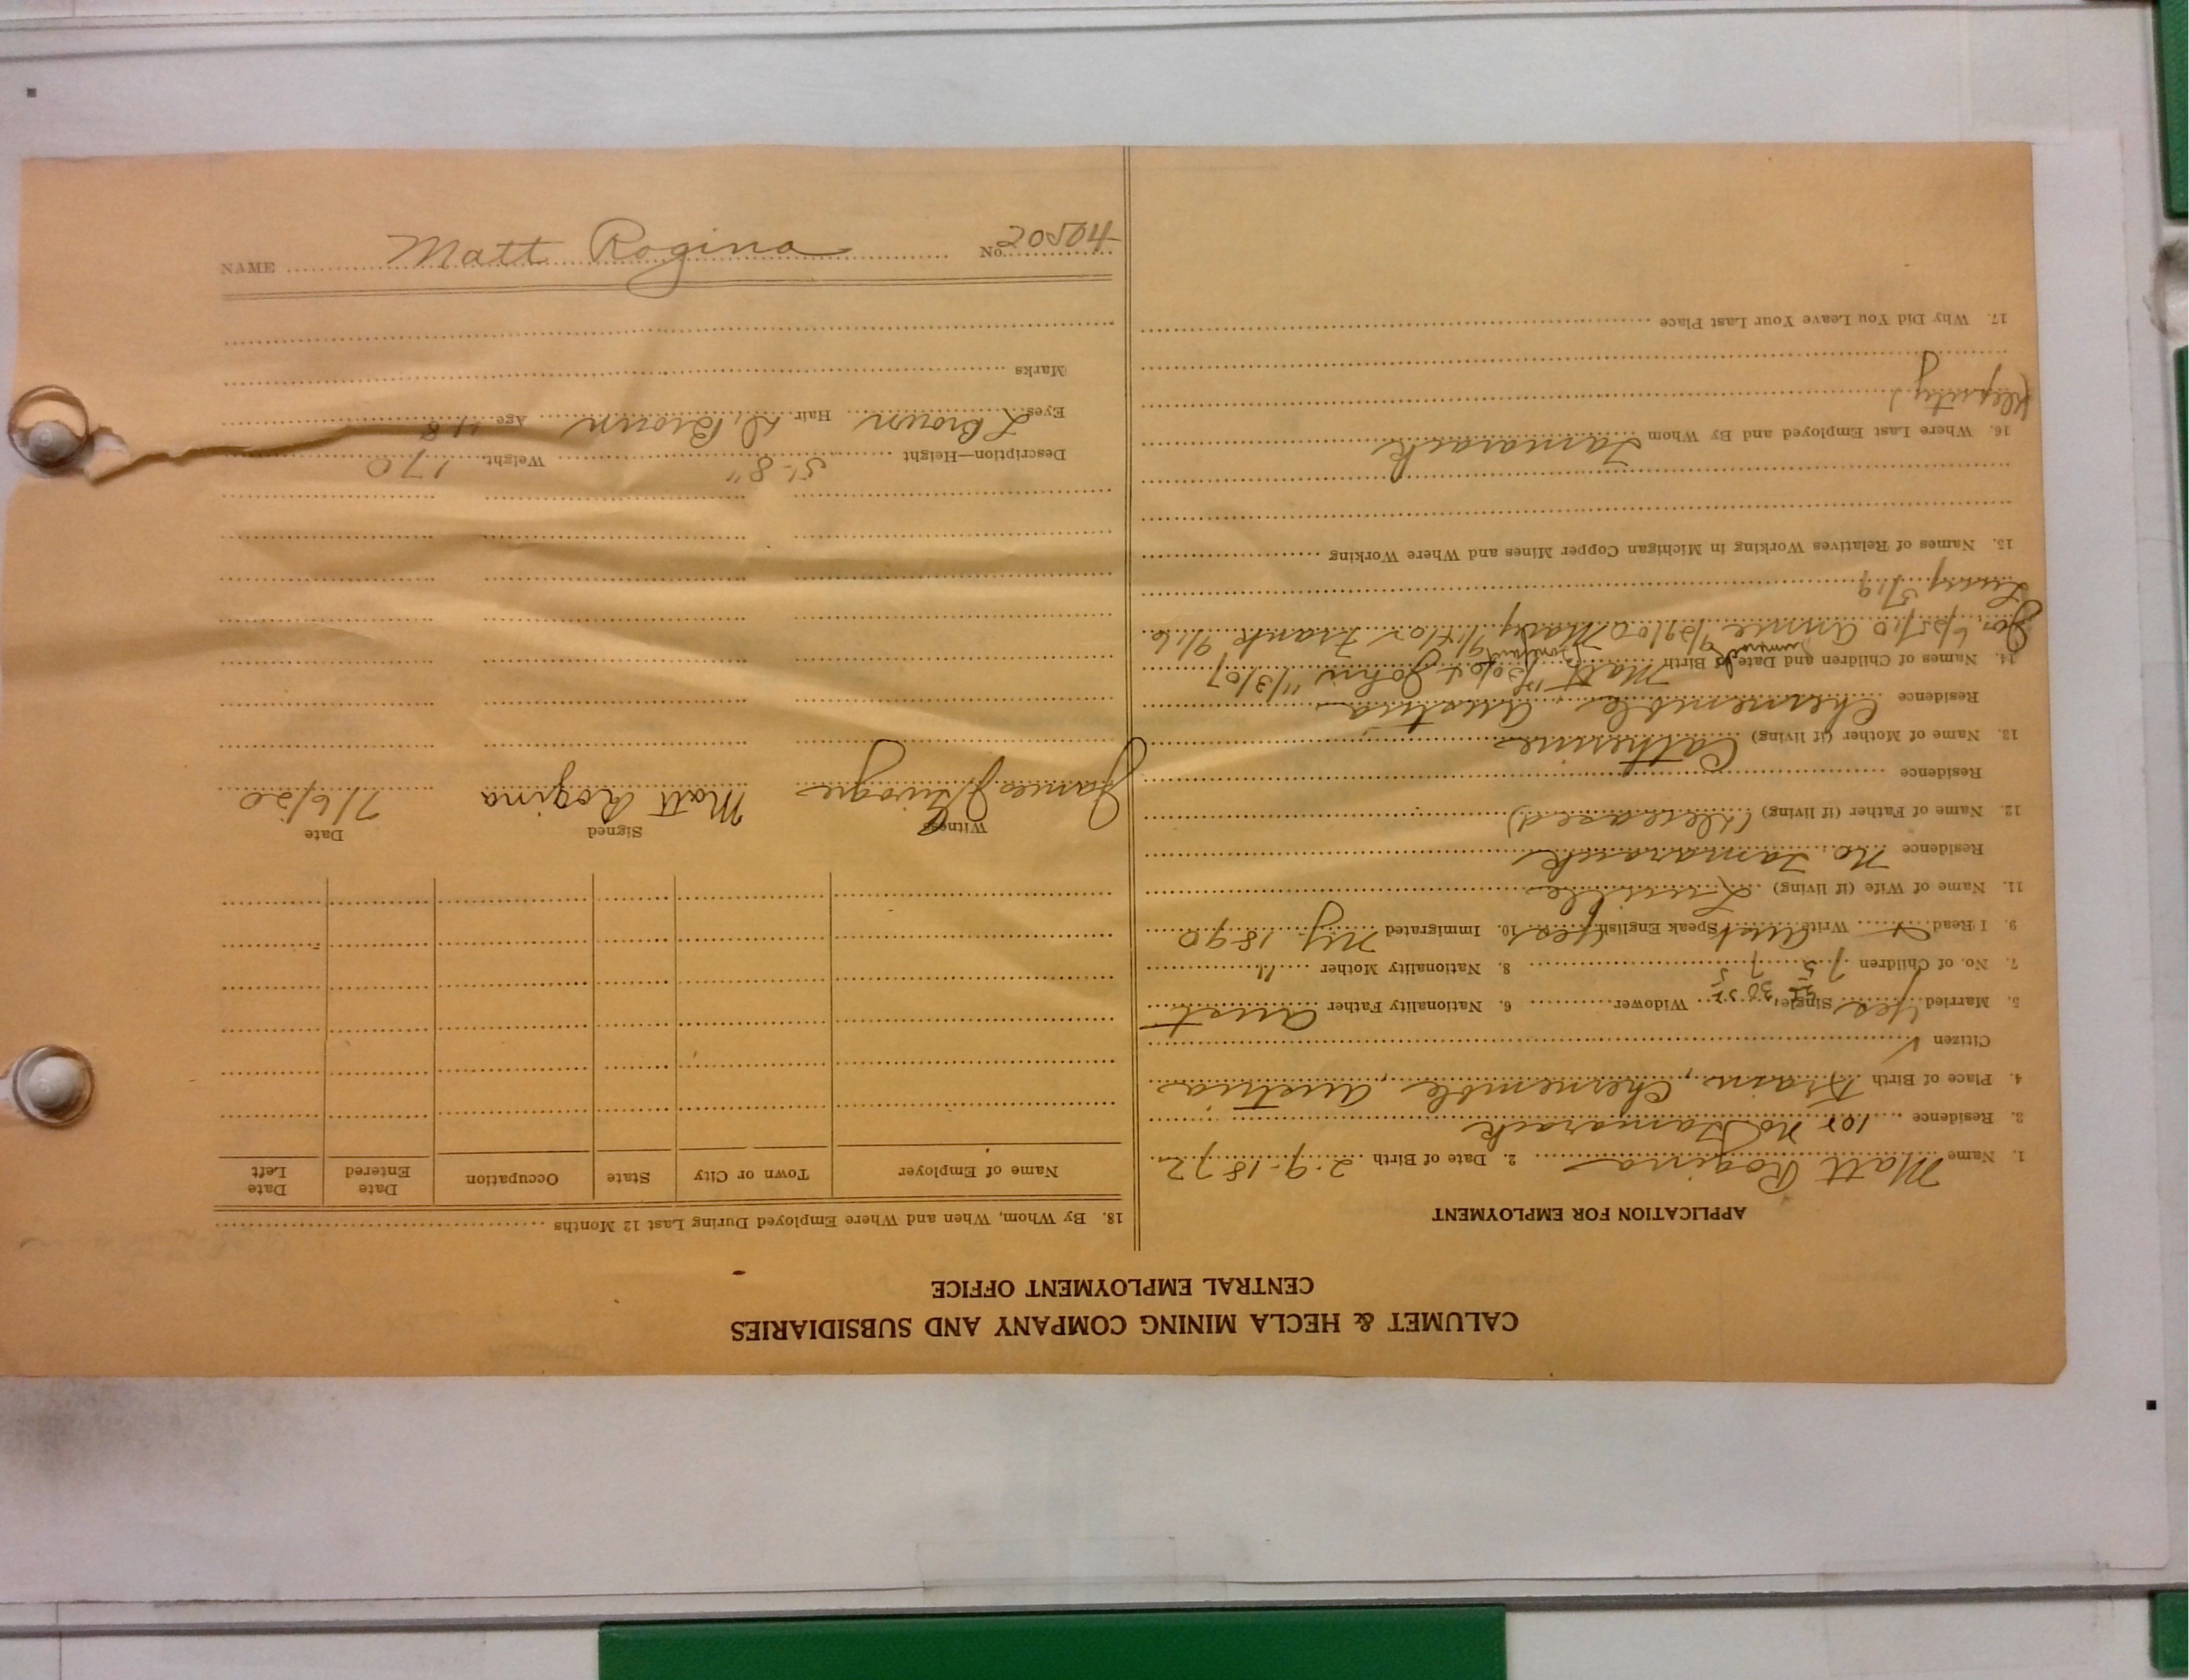 CALUMET & HECLA MINING COMPANY AND SUBSIDIARIES
CENTRAL EMPLOYMENT OFFICE
APPLICATION FOR EMPLOYMENT
1. Name Matt Rogina 2. Date of Birth 2-9-1872
3. Residence 108 No Tamarack
4. Place of Birth Krain, Chernemble, Austria
Citizen ✓
5. Married Yes Single Widower 6. Nationality Father Aust
7. No. of Children 7 8. Nationality Mother "
9. I Read x Write Aust Speak English Yes 10. Immigrated NY. 1890
11. Name of Wife (if living)
Residence No. Tamarack
12. Name of Father (if living) (deceased)
Residence
13. Name of Mother (if living) Catherine
Residence Chernemble, Austria
14. Names of Children and Date of Birth Matt John 11/3/07
Jos. 6/25/10 Annie 9/29/00 Mary Frank 9/16
Lucy 5/19
15. Names of Relatives Working in Michigan Copper Mines and Where Working
16. Where Last Employed and By Whom Tamarack
17. Why Did You Leave Your Last Place
18. By Whom, When and Where Employed During Last 12 Months
Name of Employer Town or City State Occupation Date Entered Date Left
Witness Signed Date
James Matt Rogina 7/6/20
Description—Height 5'-8" Weight 170
Eyes L Brown Hair D. Brown Age 48
Marks
NAME Matt Rogina No. 20504